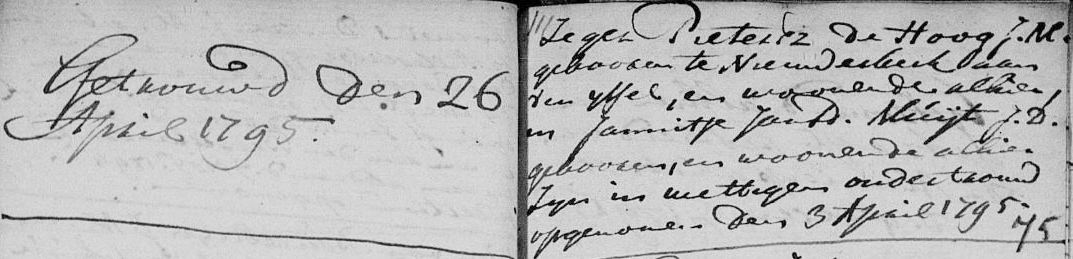 Getrouwd den 26
April 1795.
Zeger Pietersz de Hoog J.M.
gebooren te Nieuderkerk aan
den yssel, en woonende alhier,
en Jannitje Jansd. Kluijt J.D.
gebooren, en woonende alhier
Zijn in wettigen ondertrouwd
opgenomen den 3 April 1795.
75